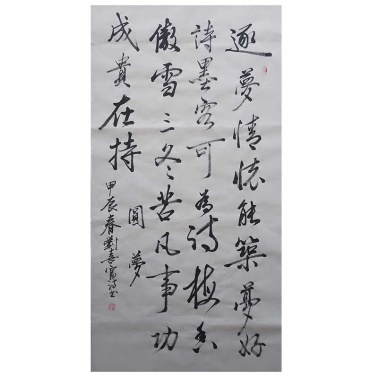 逐夢情懷能築夢好
詩墨客可為詩梅香
傲雪三冬苦凡事功
成貴在持
圓夢
甲辰春劉喜